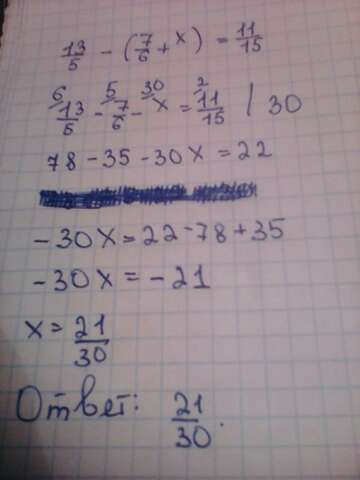 13/5 - (7/6 + x) = 11/15
6/ 13/5 - 5/ 7/6 - 30/ x = 2/ 11/15 | 30
78 - 35 - 30x = 22
-30x = 22 - 78 + 35
-30x = -21
x = 21/30
Ответ: 21/30.